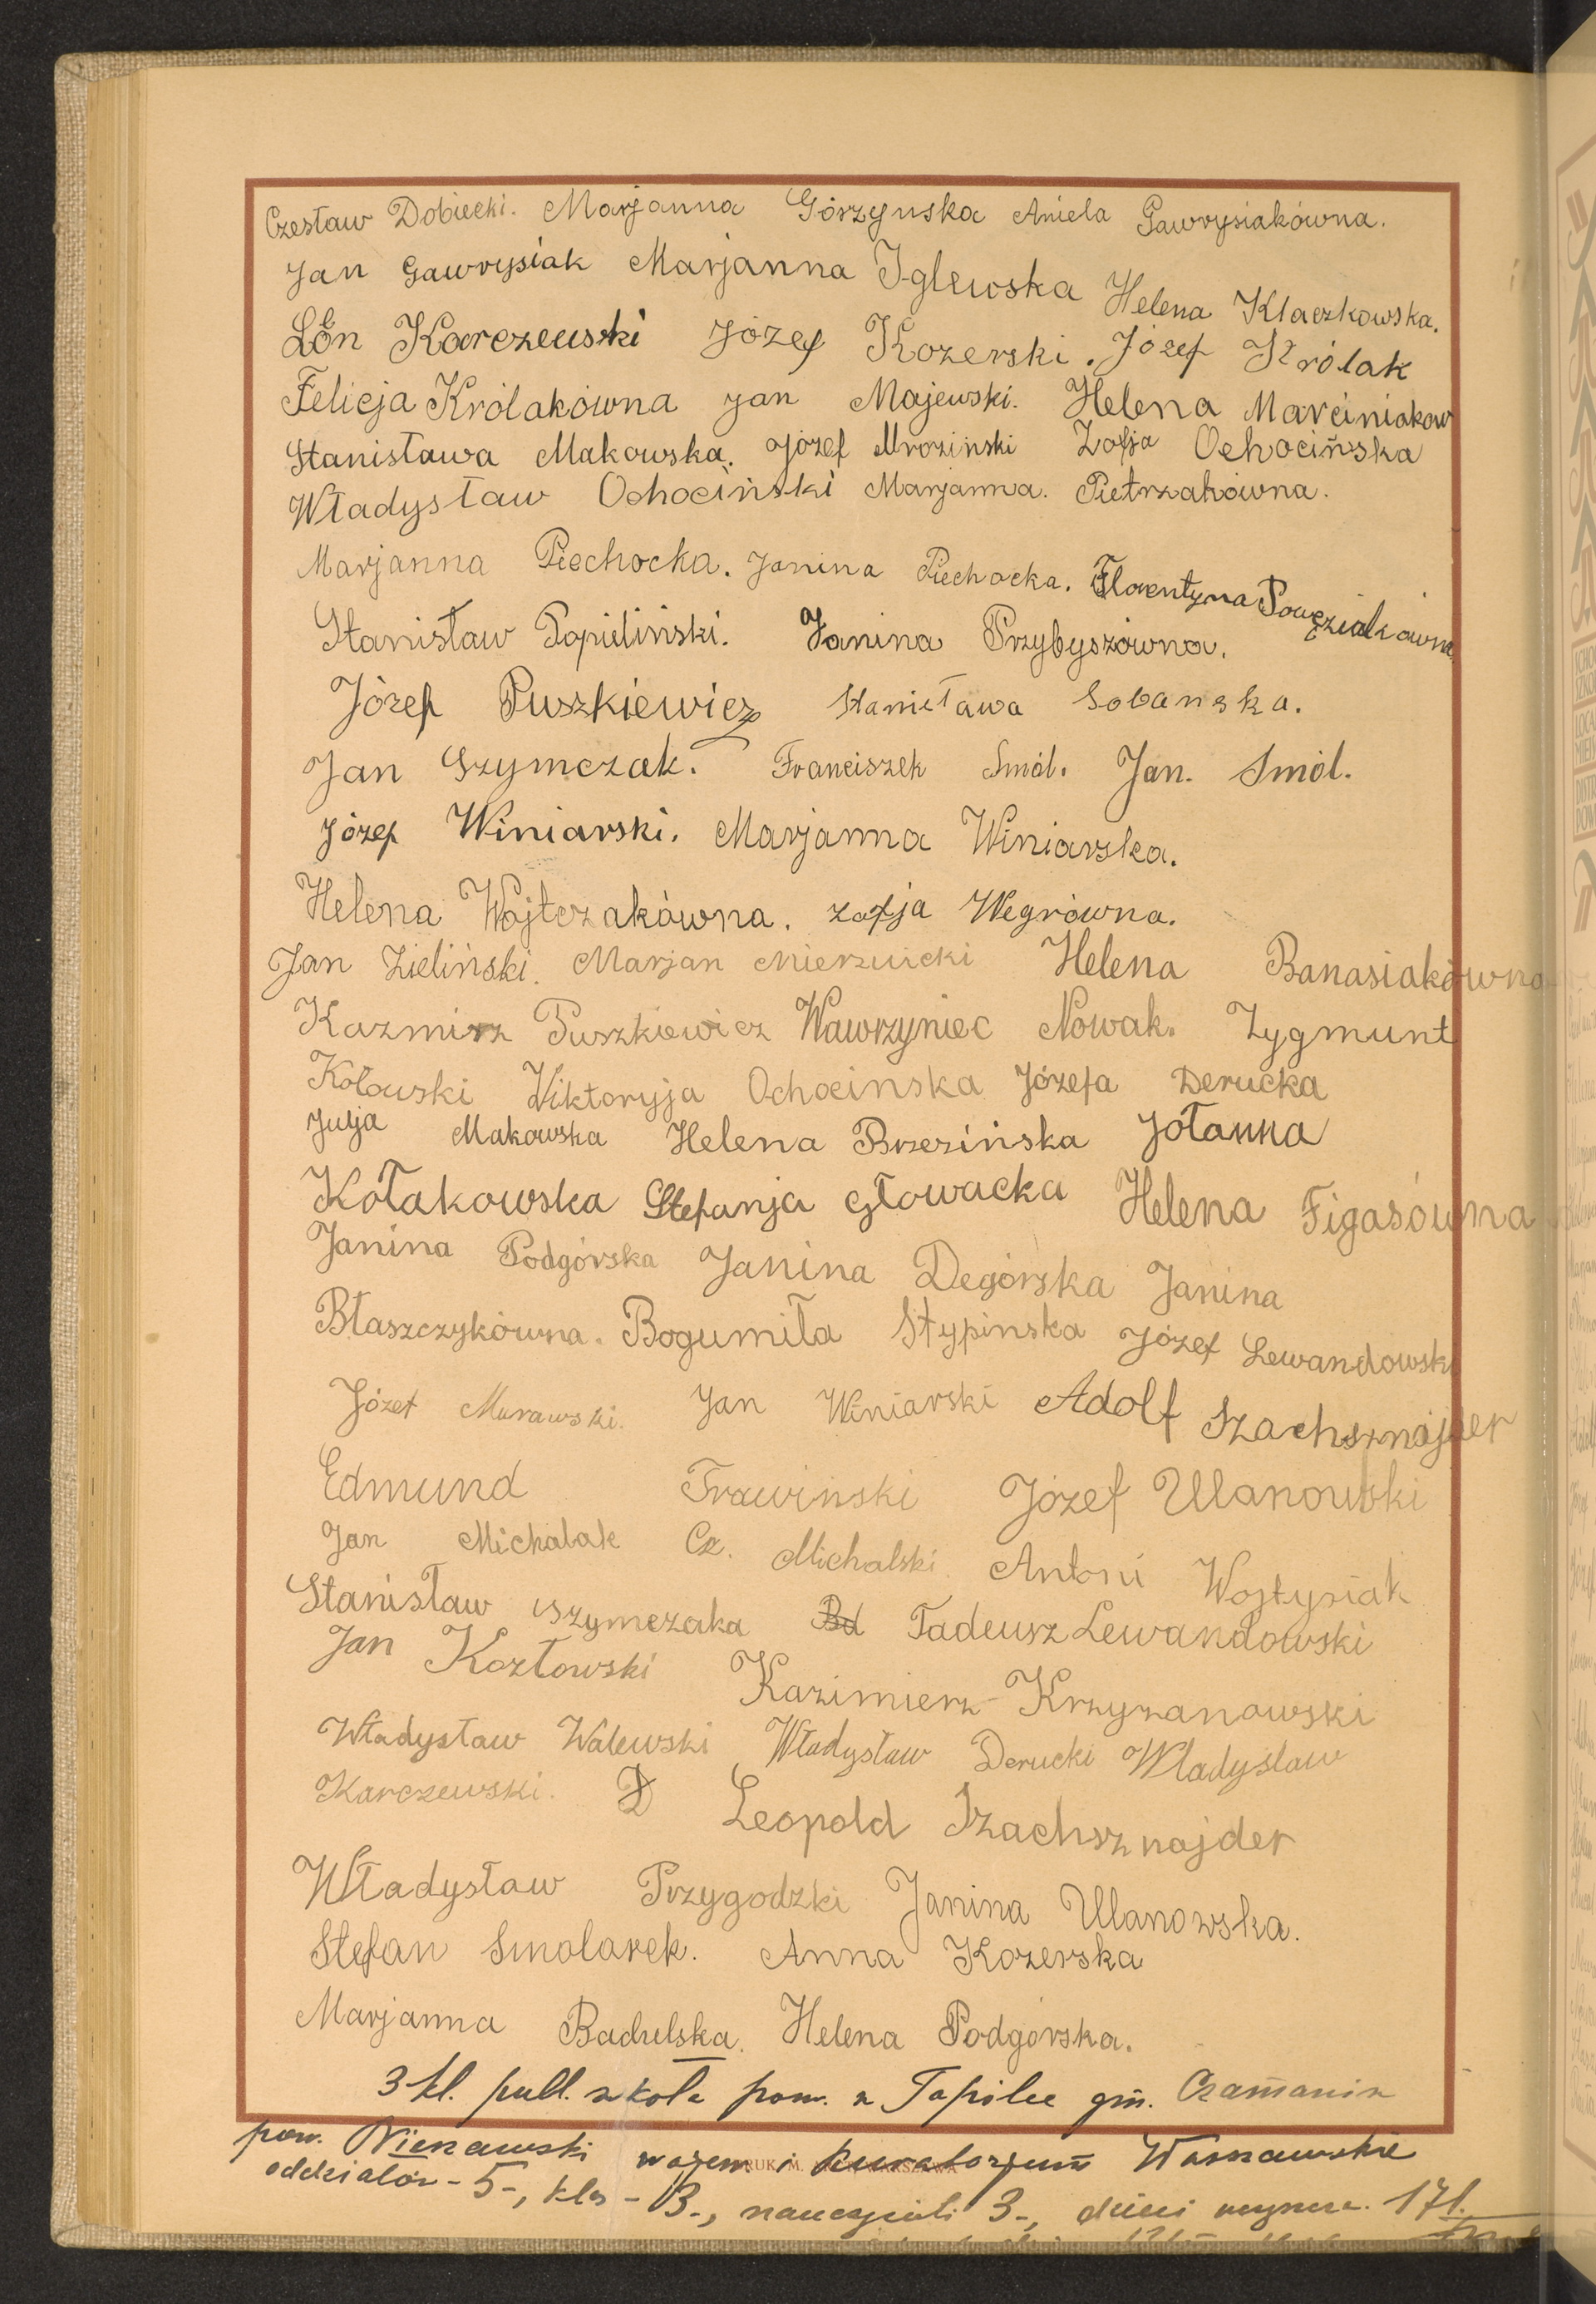 Czesław Dobiecki. Marjanna Górzynska Aniela Gawrysiakówna.
Jan Gawrysiak Marjanna Iglewska Helena Klaczkowska.
Leon Karczewski Józef Kozerski. Józef Królak
Felicja Królakówna Jan Majewski. Helena Marciniakow
Stanisława Makowska. Józef Mrozinski Zofja Ochocińska
Władysław Ochociński Marjanna. Pietrzakówna.
Marjanna Piechocka. Janina Piechocka. Florentyna
Stanisław Popieliński. Janina Przybyszówna.
Józef Puszkiewicz Stanisława Sobanska.
Jan Szymczak. Franciszek Smól. Jan. Smól.
Józef Winiarski. Marjanna Winiarska.
Helena Wojtczakówna. Zofja Wegrówna.
Jan Zieliński. Marjan Mierzwicki Helena Banasiakówna
Kazmirz Puszkiewicz Wawrzyniec Nowak. Zygmunt
Kołowski Wiktoryja Ochocinska Józefa Derucka
Julja Makowska Helena Brzezińska Jołanna
Kołakowska Stefanja Głowacka Helena Figasówna
Janina Podgórska Janina Degórska Janina
Błaszczykówna. Bogumiła Stypinska Józef Lewandowski
Józef Murawski. Jan Winiarski Adolf Szachsznajder
Edmund Trawiński Józef Ulanowski
Jan Michalak Cz. Michalski Antoni Wojtysiak
Stanisław Szymczaka Bd Tadeusz Lewandowski
Jan Kozłowski Kazimierz Krzyzanowski
Władysław Walewski Władysław Derucki Władysław
Karczewski. D Leopold Szachsznajder
Władysław Przygodzki Janina Ulanowska.
Stefan Smolarek. Anna Kozerska
Marjanna Badulska. Helena Podgórska.
3 kl. publ. szkoła pow. w Topilce gm. Czamanin
pow. Nieszawski wojew. i kuratorjum Warszawskie
oddziałów - 5-, klas - 3-, nauczycieli 3-, dzieci 171.